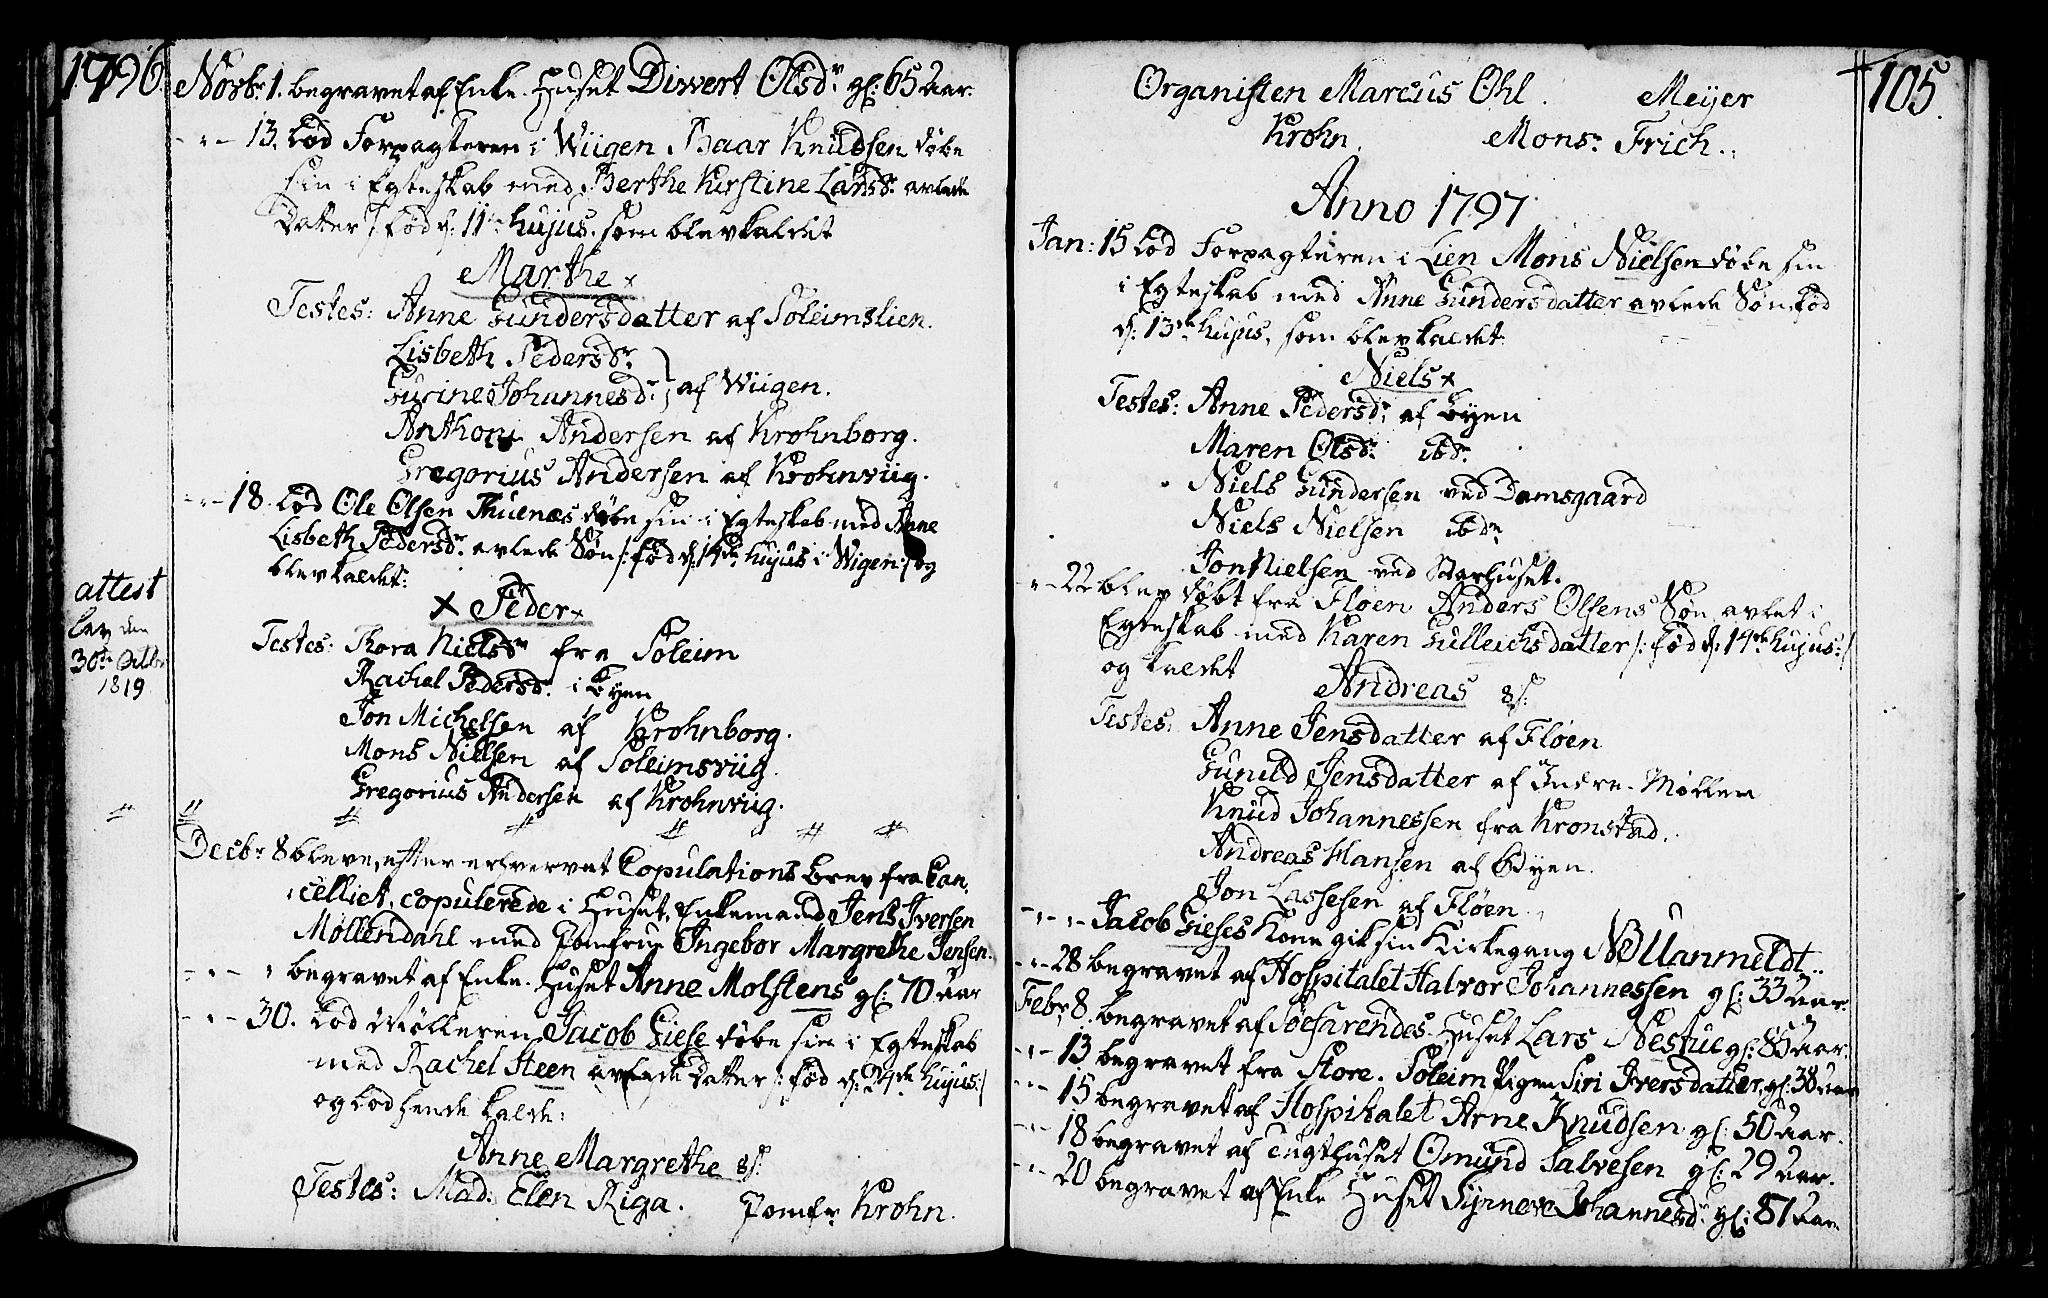 1796
Novbr 1. begravet af Enke-Huset Diwert Olsdr gl: 65 Aar.
-"- 13. Lod Forpagteren i Wiigen Baar Knudsen døbe
sin i Egteskab med Berthe Kirstine Larsdr avlede
Datter /: fød d: 11te hujus, som blev kaldet
Marthe x
Testes: Anne Gundersdatter af Soleimslien.
Lisbeth Pedersdr
Gurine Johannesdr } af Wiigen.
Anthoni Andersen af Krohnborg.
Gregorius Andersen af Krohnviig.
-"- 18. Lod Ole Olsen Thuenæs døbe sin i Egteskab med Anne
Lisbeth Pedersdr avlede Søn /: fød d: 14de hujus i Wigen :/ og
blev kaldet:
x Peder x
attest
lev den
30te Octbr
1819
Testes: Thora Nielsdr fra Soleim
Rachel Pedersdr i Byen
Jon Michelsen af Krohnborg.
Mons Nielsen af Soleimsviig.
Gregorius Andersen af Krohnviig.
# # # # # # #
Decbr 8 bleve, efter erhvervet Copulations Brev fra Can,
celliet, copulerede i Huset, Enkemand Jens Iversen
Møllendahl med Jomfrue Ingebor Margrethe Jensen.
-"- " begravet af Enke-Huset Anne Molstens gl: 70 Aar
-"- 30. Lod Mølleren Jacob Giese døbe sin i Egteskab
med Rachel Steen avlede Datter /: fød d: 24de hujus :/
og lod hende kalde:
Anne Margrethe 8/:
Testes: Mad: Elen Riga. Jomfr Krohn.
105.
Organisten Marcus Øhl. Meyer
Krohn. Monsr Frich.
Anno 1797
Jan: 15 Lod Forpagteren i Lien Mons Nielsen døbe sin
i Egteskab med Anne Gundersdatter avlede Søn, fød
d: 13de hujus, som blev kaldet:
Niels x
Testes: Anne Pedersdr af Byen
Maren Olsdr ibdm
Niels Gundersen ved Damsgaard
Niels Nielsen ibdm
Jon Nielsen ved Storhuset.
"- 22 blev døbt fra Fløen Anders Olsens Søn avlet i
Egteskab med Karen Gulleichsdatter /: fød d: 14de hujus :/
og kaldet
Andreas 8/:
Testes: Anne Jensdatter af Fløen
Gunild Jensdatter af Indre-Møllen
Knud Johannessen fra Kronstad.
Andreas Hansen af Byen.
Jon Lassesen af Fløen.
-"- "- Jacob Gieses Kone gik sin Kirkegang NB Uanmeldt.
-"- 28 begravet af Hospitalet Halvor Johannessen gl: 33 Aar.
Febr 8. begravet af Søefarendes Huset Lars Nestue gl: 85 Aar.
-"- 13 begravet fra Store-Soleim Pigen Siri Iversdatter gl: 38 Aar
-"- 15 begravet af Hospitalet Arne Knudsen gl: 50 Aar.
-"- 18 begravet af Tugthuset Omund Salvesen gl: 29 Aar.
-"- 20 begravet af Enke Huset Synneve Johannesdr gl: 87 Aar